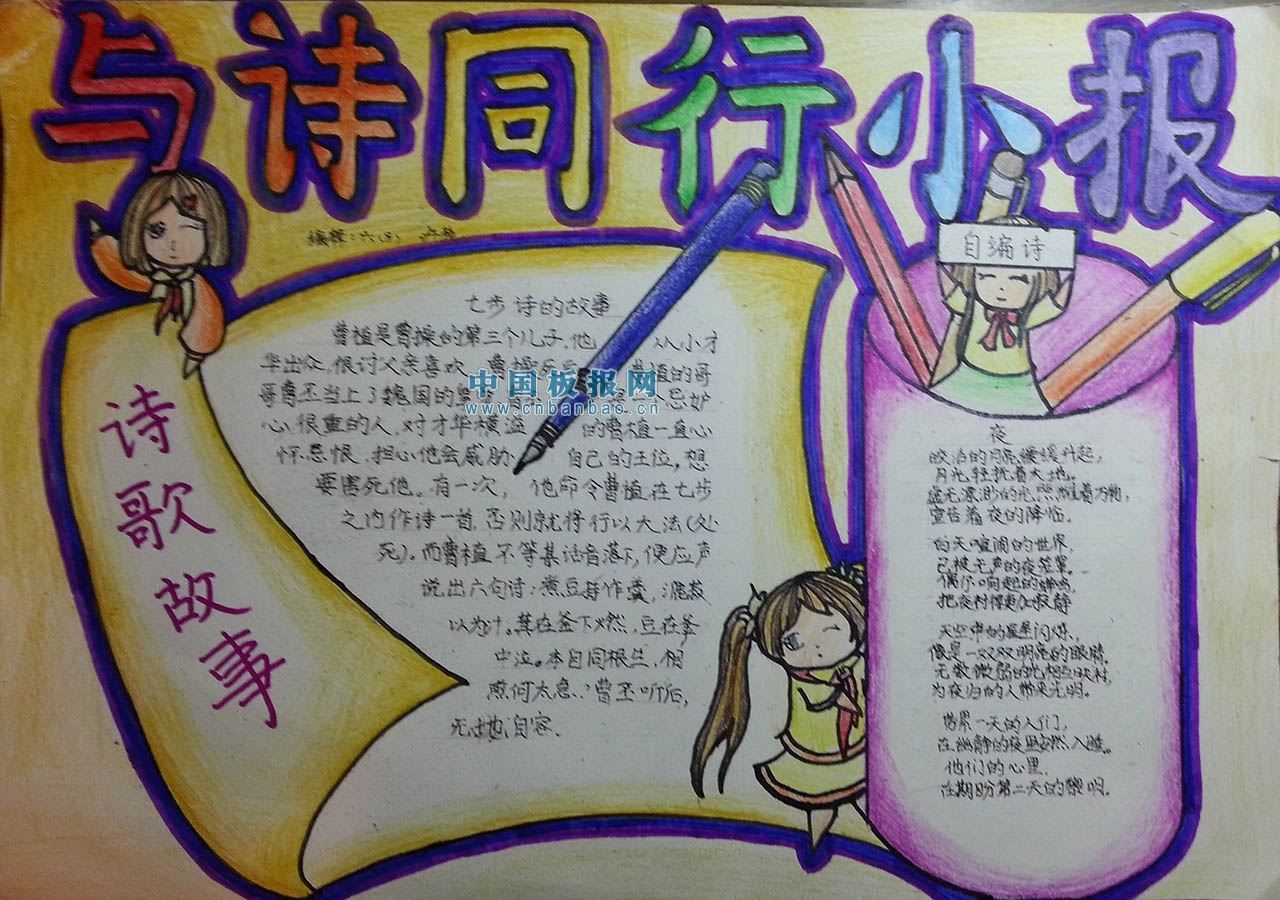 与诗同行小报
编辑：六(3)
七步诗的故事
曹植是曹操的第三个儿子，他 从小才
华出众，很讨父亲喜欢。曹操死后 植的哥
哥曹丕当上了魏国的皇 一个忌妒
中国板报网
www.cnbanbao.cn
心很重的人，对才华横溢 的曹植一直心
怀忌恨，担心他会威胁 自己的王位，想
要害死他。有一次， 他命令曹植在七步
之内作诗一首，否则就将行以大法(处
死)。而曹植不等其话音落下，便应声
说出六句诗：煮豆持作羹，漉菽
以为汁。萁在釜下燃，豆在釜
中泣。本自同根生，相
煎何太急？曹丕听后，
无地自容.
诗歌故事
自编诗
夜
皎洁的月亮缓缓升起，
月光轻抚着大地。
虚无漂渺的光照耀着万物，
宣告着夜的降临.
白天喧闹的世界，
已被无声的夜笼罩。
偶尔响起的蝉鸣，
把夜衬得更加寂静
天空中的星星闪烁，
像是一双双明亮的眼睛，
无数微弱的光相互映衬，
为夜归的人带来光明。
忙累一天的人们，
在幽静的夜里安然入睡。
他们的心里，
在期盼第二天的黎明.